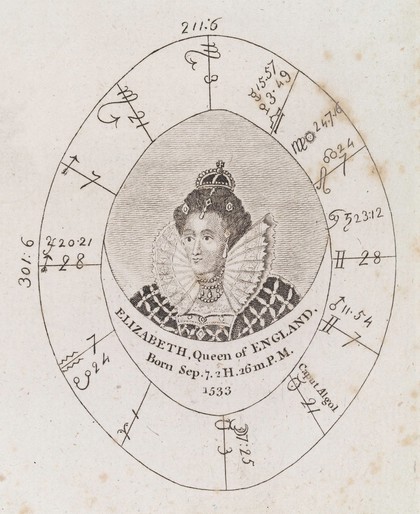 211:6
♏ 3
15.57
3:49
♍ 247:6
☋ 24
♌ 7
♋ ♄ 23:12
♊ 28
♂ 11:54
♊ 7
Caput Algol
♉ 21
☽ 7:25
♉ 3
♈
24
7
301:6
♃ 20:21
♐ 28
♐ 7
♏ 21
ELIZABETH, Queen of ENGLAND.
Born Sep. 7. 2H. 26m. P.M.
1533